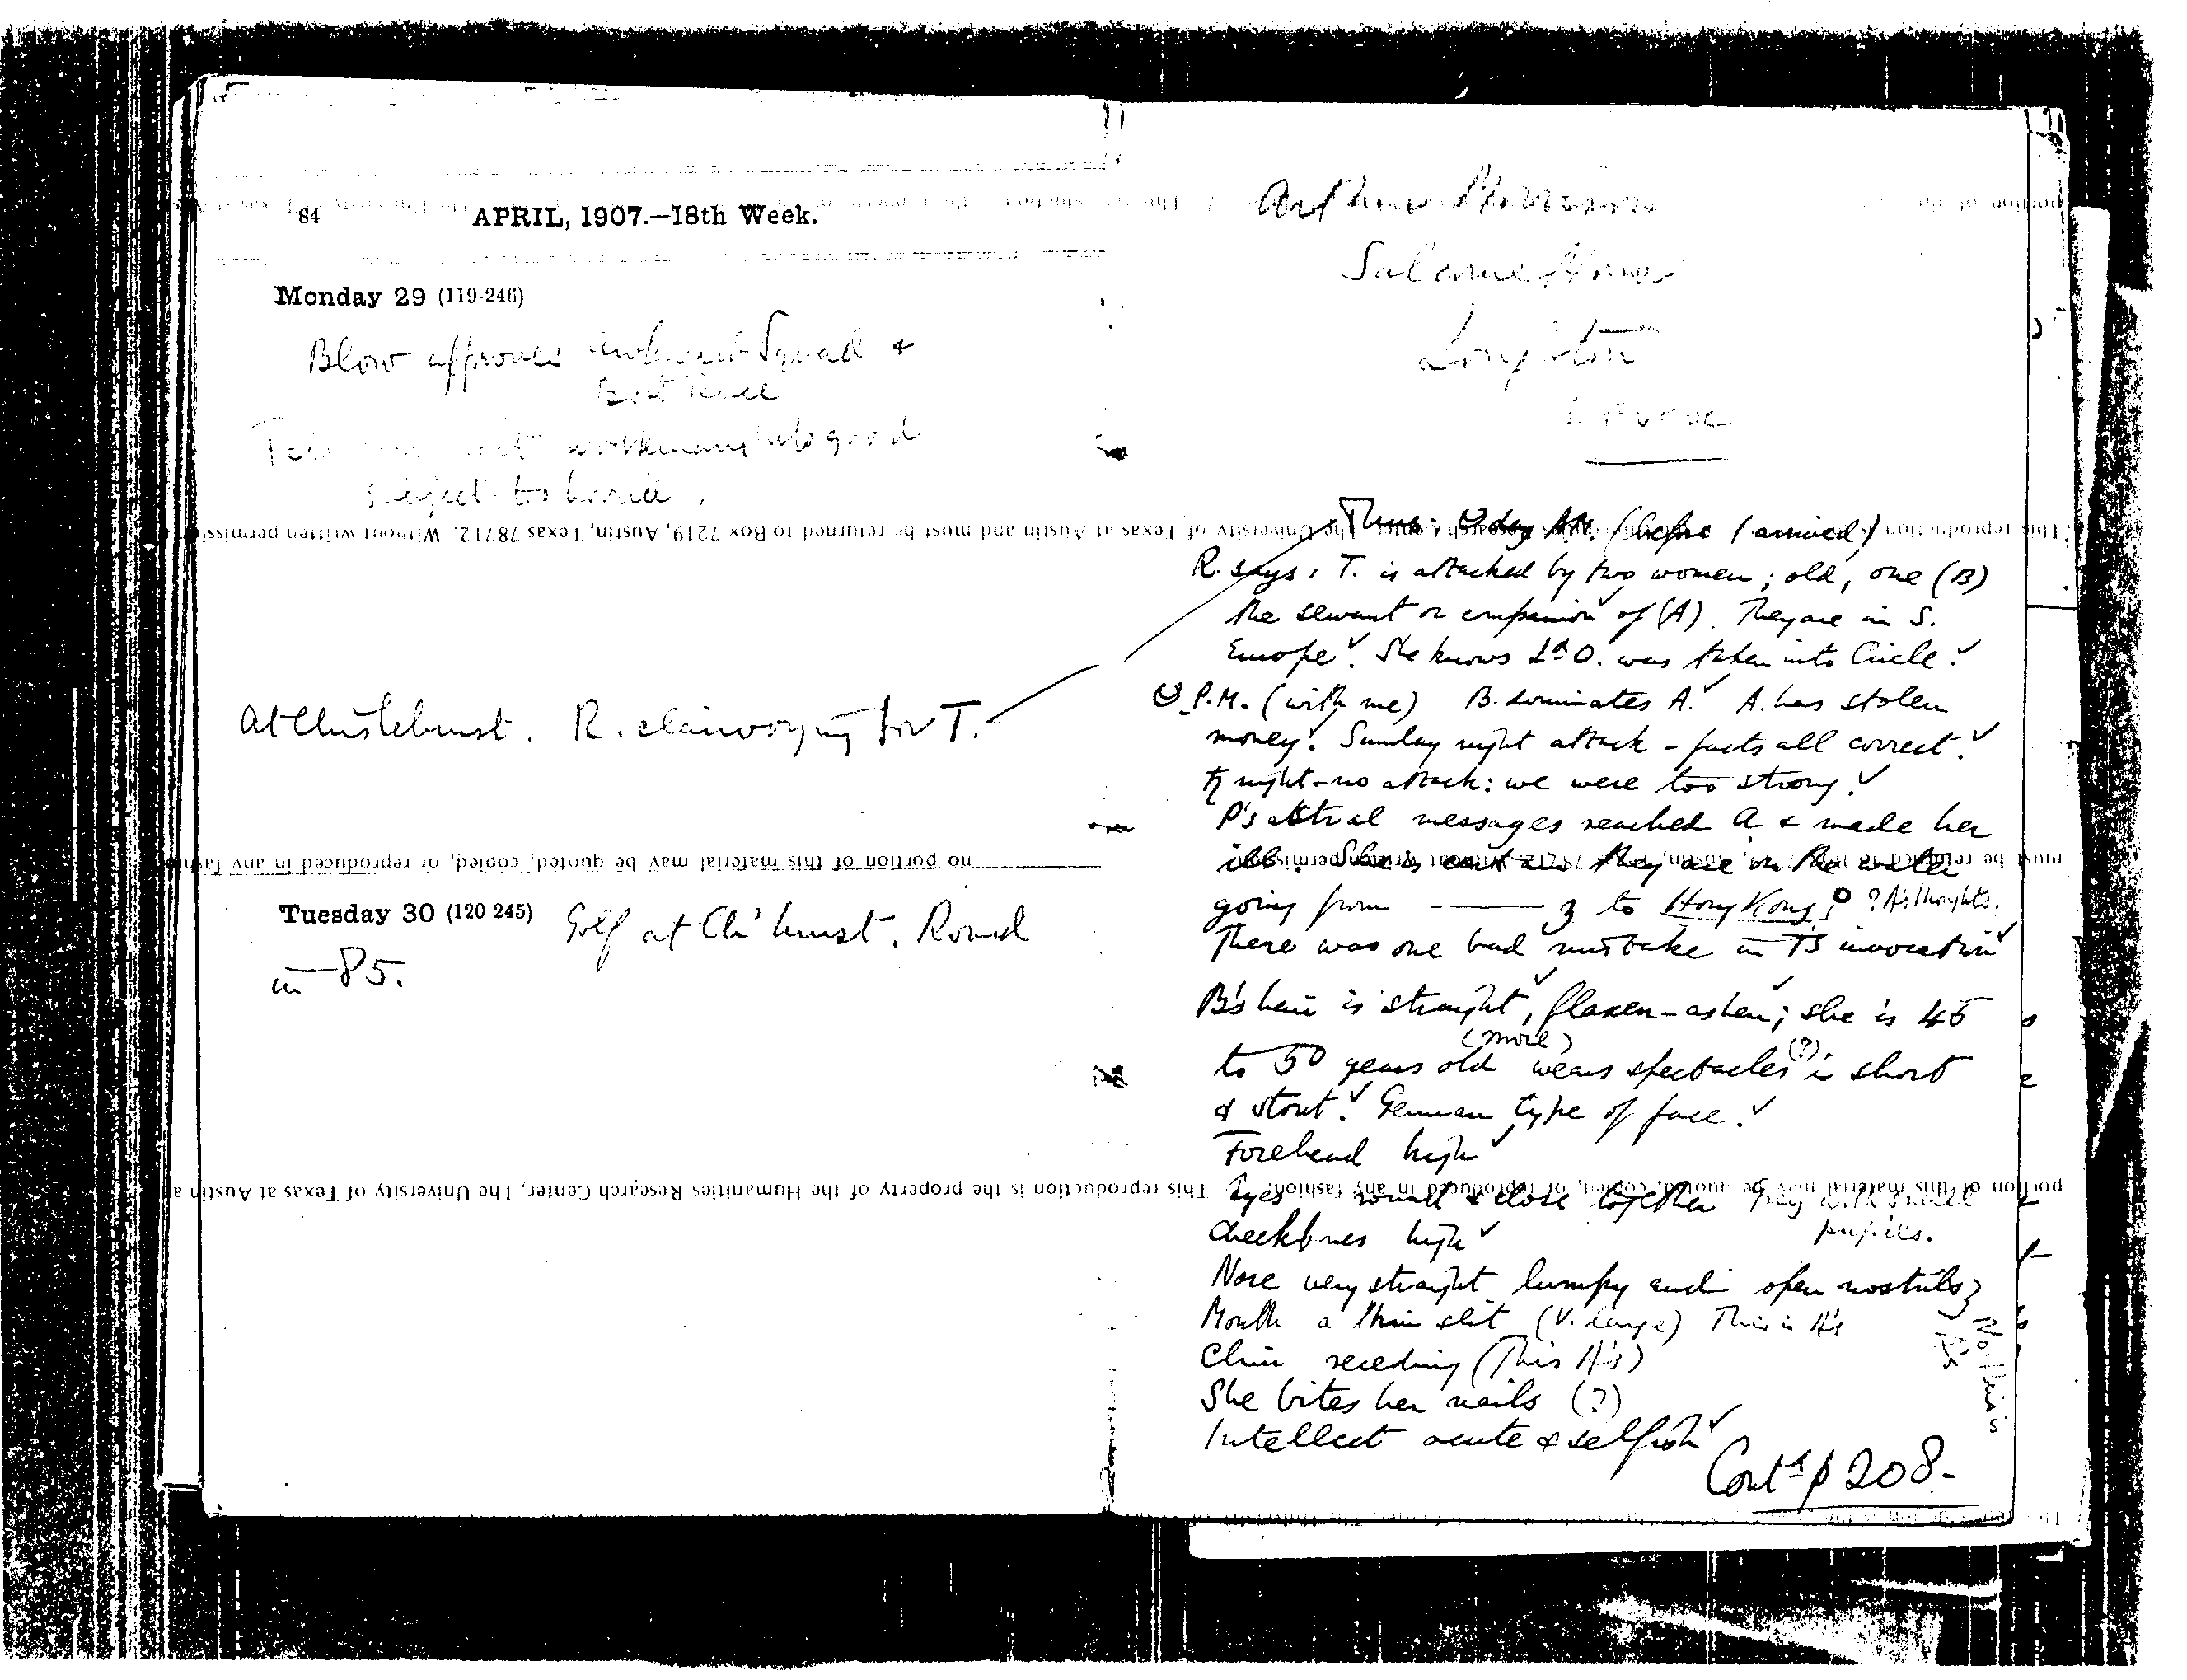 84 APRIL, 1907.—18th Week.
Monday 29 (119-246)
Blow approves awkward Squad &
good
subject to
At Chislehurst. R. clairvoying for T.
no portion of this material may be quoted, copied, or reproduced in any fash
Tuesday 30 (120 245) Golf at Ch'hurst. Round
in 85.
This reproduction is the property of the Humanities Research Center, The University of Texas at Austin
and must be returned to Box 7219, Austin, Texas 78712. Without written permission
Arthur
Longton
Thus: ☿ day A.M. (before I arrived)
R. says, T. is attacked by two women; old, one (B)
the servant or companion ✓ of (A). They are in S.
Europe ✓. She knows Ld O. was taken into Circle. ✓
☿ P.M. (with me) B. dominates A. ✓ A. has stolen
money. ✓ Sunday night attack - facts all correct. ✓
♄ night - no attack: we were too strong. ✓
P's astral messages reached A & made her
ill. they are on the water
going from ——— z to Hong Kong? ? A's thoughts.
There was one bad mistake in T's invocation ✓
B's hair is straight ✓, flaxen-ashen ✓; she is 45
to 50 (more) years old wears spectacles (?) is short
& stout. ✓ German type of face. ✓
Forehead high ✓
Eyes round & close together grey with small
pupils.
Cheekbones high ✓
Nose very straight lumpy end open nostrils }
Mouth a thin slit (V. large) This is A's
Chin receding (This A's)
No this is A's
She bites her nails (?)
Intellect acute & selfish ✓
Contd p 208.